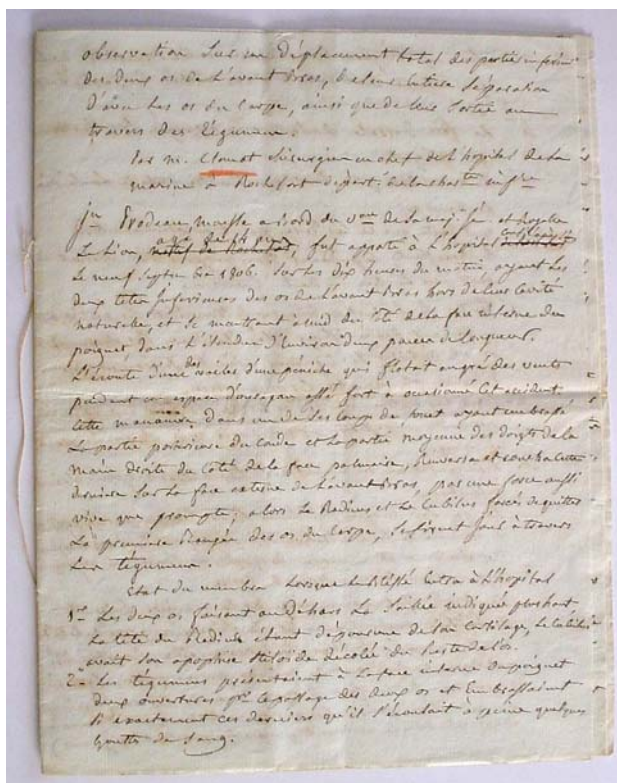 observation sur un déplacement total des parties inférieu
des deux os de l'avant bras, de leur entiere séparation
d'avec les os du carpe, ainsi que de leur sortie au
travers des tégumens.
Par m. Clomat chirurgien en chef de l'hôpital de la
marine à Rochefort départ. de la char.te inf.re
j.n Brodeau, mousse a bord du v.eau de sa maj. et royale
Le Lion, fut apporté à l'hôpital
le neuf septembre 1806. sur les dix heures du matin, ayant les
deux têtes inférieures des os de l'avant bras hors de leur cavité
naturelle, et se montrant à nud du côté de la face interne du
poignet, dans l'étendue d'environ deux pouces de longueur.
L'écoute d'une des voiles d'une péniche qui flotait au gré des vents
pendant un espece d'ouragan assé fort à occasionné cet accident.
Cette manœuvre, dans un de ses coups de fouet ayant embrassé
la partie postérieure du coude et la partie moyenne des doigts de la
main droite du côté de la face palmaire, renversa et contre cette
derniere sur la face externe de l'avant bras, par une force aussi
vive que prompte; alors le Radius et le Cubitus forcés de quitter
la premiere rangée des os du carpe, se firent jour à travers
les tégumens.
Etat du membre lorsque le blessé entra à l'hôpital
1° Les deux os faisant au déhors la saillie indiquée plus haut
la tête du Radius étant dépourvue de son cartilage, le cubitus
avait son apophise stiloïde décolée du reste de l'os.
2° Les tégumens présentaient à la face interne du poignet
deux ouvertures pr. le passage des deux os et embrassaient
si exactement ces derniers qu'il s'écoulait à peine quelques
gouttes de sang.